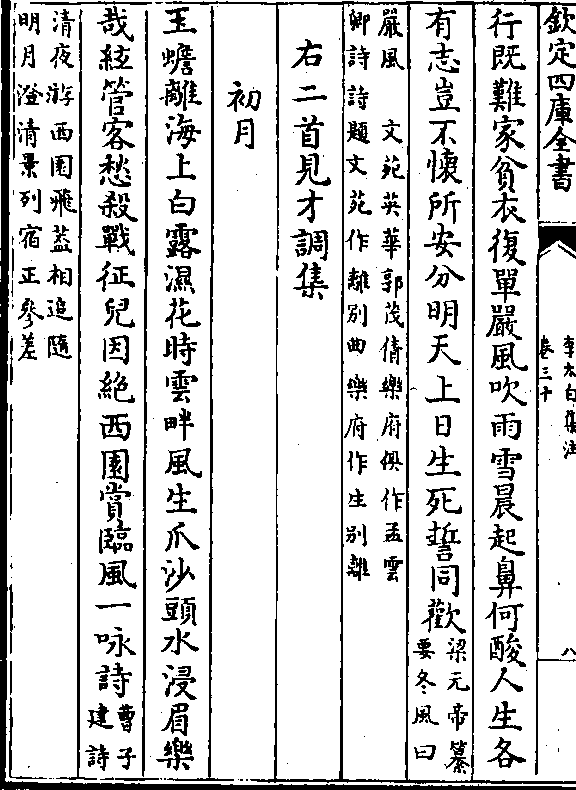 欽定四庫全書
李太白集注
卷三十
八
行既難家貧衣復單嚴風吹雨雪晨起鼻何酸人生各
有志豈不懷所安分明天上日生死誓同歡
梁元帝纂
要冬風曰
嚴風
文苑英華郭茂倩樂府俱作孟雲
卿詩詩題文苑作離别曲樂府作生别離
右二首見才調集
初月
玉蟾離海上白露濕花時雲畔風生爪沙頭水浸眉樂
哉絃管客愁殺戰征兒因絶西園賞臨風一咏詩
曹子
建詩
清夜游西園飛葢相追隨
明月澄清景列宿正參差